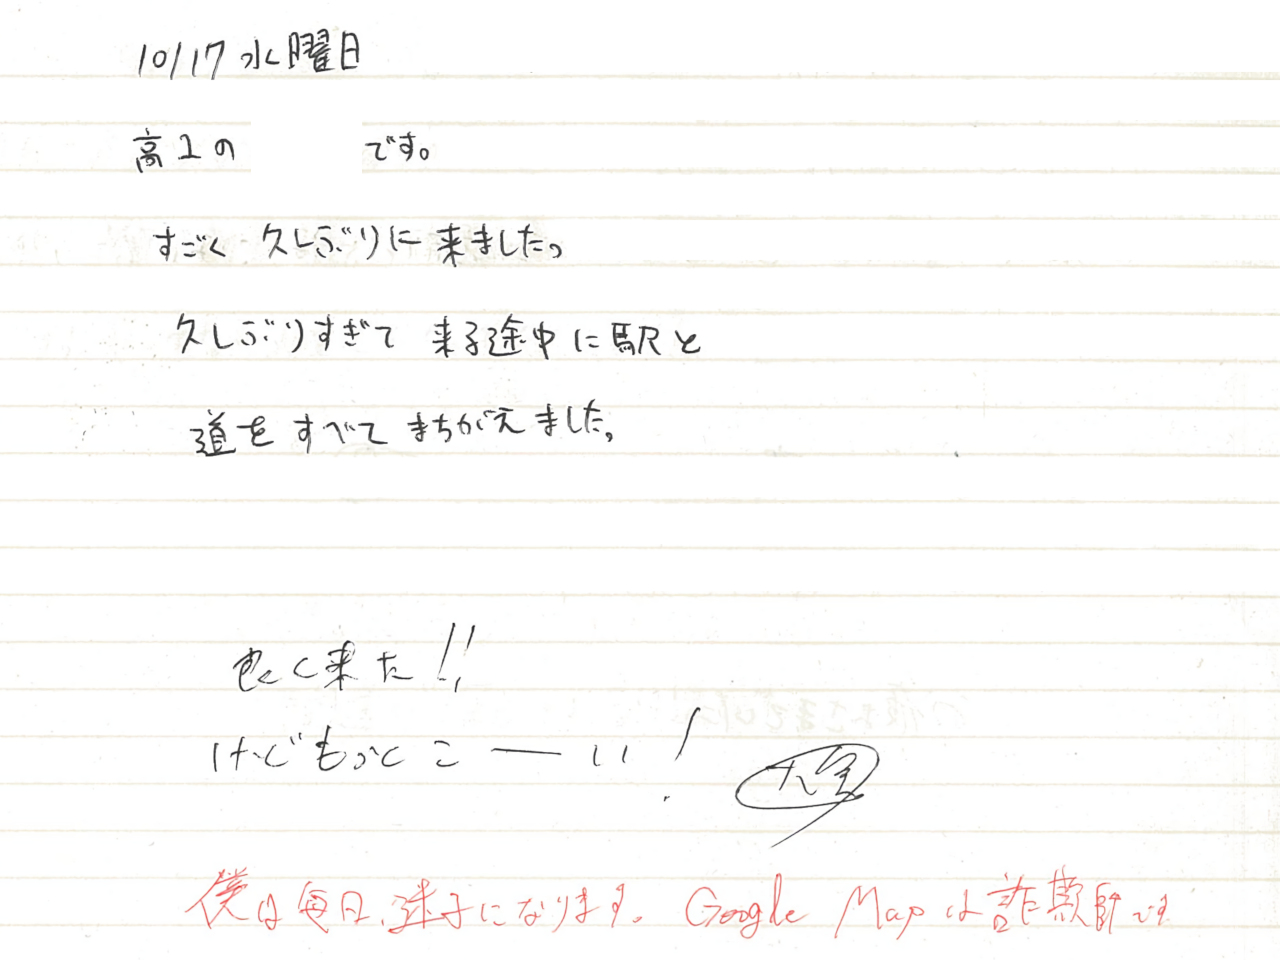 10/17 水曜日
高1の です。
すごく 久しぶりに 来ました。
久しぶりすぎて 来る途中に駅と
道を すべて まちがえました。
良く来た!!
けどもっと こーい!
僕は毎日、迷子になります。Google Mapは詐欺師です